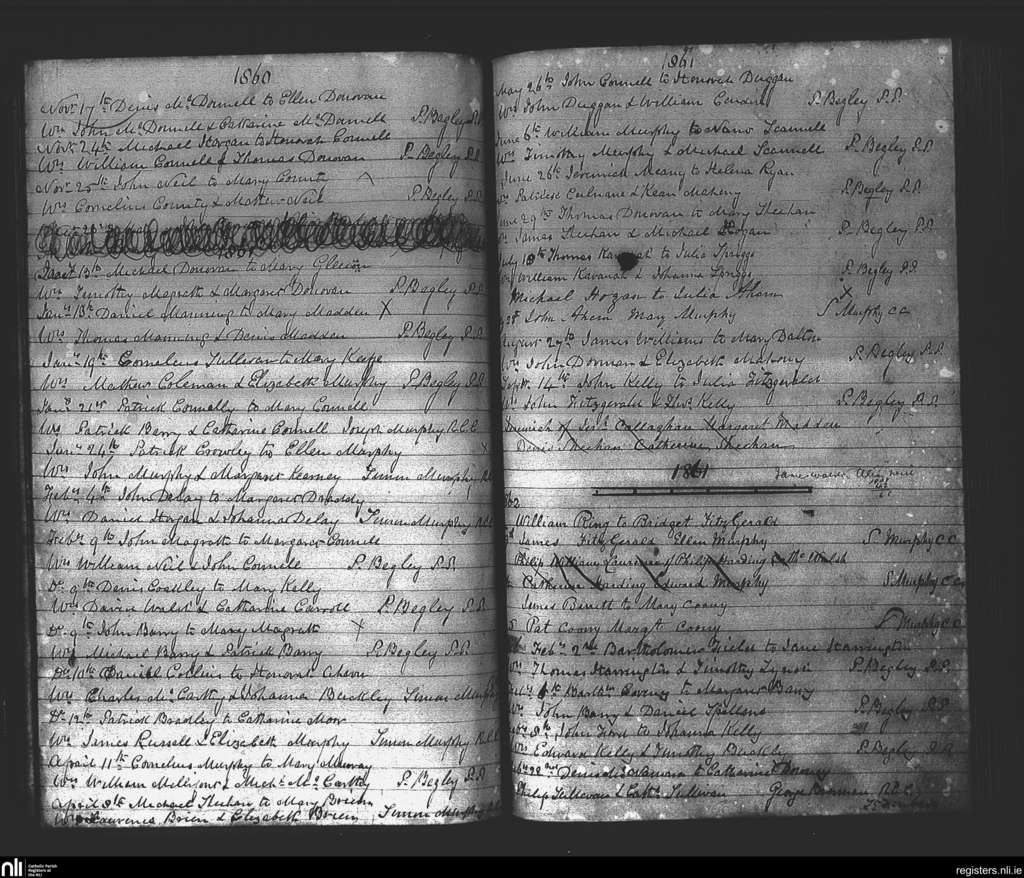 1860
Novr 17th Denis McDonnell to Ellen Donovan
Ws John McDonnell & Catharine McDonnell P. Begley P.P.
Novr 24th Michael Horgan to Honorah Connell
Ws William Connell & Thomas Donovan P. Begley P.P.
Novr 25th John Neil to Mary County
Ws Cornelius County & Mathew Neil P. Begley P.P.
13th Michael Donovan to Mary Gleeson
Ws Timothy Magrath & Margaret Donovan P. Begley P.P.
Jany 13th Daniel Manning to Mary Madden X
Ws Thomas Manning & Denis Madden P. Begley P.P.
Jany 19th Cornelius Sullivan to Mary Keefe
Ws Mathew Coleman & Elizabeth Murphy P. Begley P.P.
Jany 21st Patrick Connolly to Mary Connell
Ws Patrick Barry & Catharine Connell Joseph Murphy R.C.C.
Jany 24th Patrick Crowley to Ellen Murphy
Ws John Murphy & Margaret Kearney Simon Murphy
Feby 4th John Delay to Margaret
Ws Daniel Horgan & Johanna Delay Simon Murphy
Feby 9th John Magrath to Margaret Connell
Ws William Neil & John Connell P. Begley P.P.
Do 9th Denis Coakley to Mary Kelly
Ws David Walsh & Catharine Carroll P. Begley P.P.
Do 9th John Barry to Mary Magrath X
Ws Michael Barry & Patrick Barry P. Begley P.P.
Do 10th Daniel Collins to Honorah Ahern
Ws Charles McCarthy & Johanna Buckley Simon Murphy
Do 12th Patrick Bradley to Catharine Moor
Ws James Russell & Elizabeth Murphy Simon Murphy R.C.C.
April 11th Cornelius Murphy to Mary Murray
Ws William & Michl McCarthy P. Begley P.P.
April 8th Michael Sheehan to Mary Brien
Ws Laurence Brien & Elizabeth Brien Simon Murphy
1861
May 26th John Connell to Honorah Duggan
Ws John Duggan & William P. Begley P.P.
June 6th William Murphy to Nano Scannell
Ws Timothy Murphy & Michael Scannell P. Begley P.P.
June 26th Jeremiah Meany to Helena Ryan
Ws Patrick Culnane & Kean Mahony P. Begley P.P.
June 29th Thomas Donovan to Mary Sheehan
Ws James Sheehan & Michael Hogan P. Begley P.P.
July 18th Thomas Kavanah to Julia Spriggs
Ws William Kavanah & Johanna Spriggs P. Begley P.P.
Michael Horgan to Julia Ahern X
John Ahern Mary Murphy S Murphy CC
August 27th James Williams to Mary Dalton
Ws John Dorman & Elizabeth Mahony P. Begley P.P.
Septr 14th John Kelly to Julia Fitzgerald
Ws John Fitzgerald & Thos Kelly P. Begley P.P.
Callaghan Margaret Madden
Denis Meehan Catherine Sheehan
1861
William Ring to Bridget FitzGerald
James FitzGerald Ellen Murphy S Murphy CC
Philip Philip Harding Walsh
Catherine Harding Edward Murphy S. Murphy CC
James Barrett to Mary Coony
Pat Coony Margt Coony S Murphy CC
Feby 2nd Bartholomew to Jane Harrington
Ws Thomas Harrington & Timothy Lynch P. Begley P.P.
Barthw to Margaret Barry
Ws John Barry & Daniel Spillane P. Begley P.P.
8th John to Johanna Kelly
Ws Edward Kelly & Timothy Buckley P. Begley P.P.
22nd Denis to Catharine
Philip Sullivan & Cathe Sullivan George
nli
Catholic Parish
Registers at
the NLI
registers.nli.ie